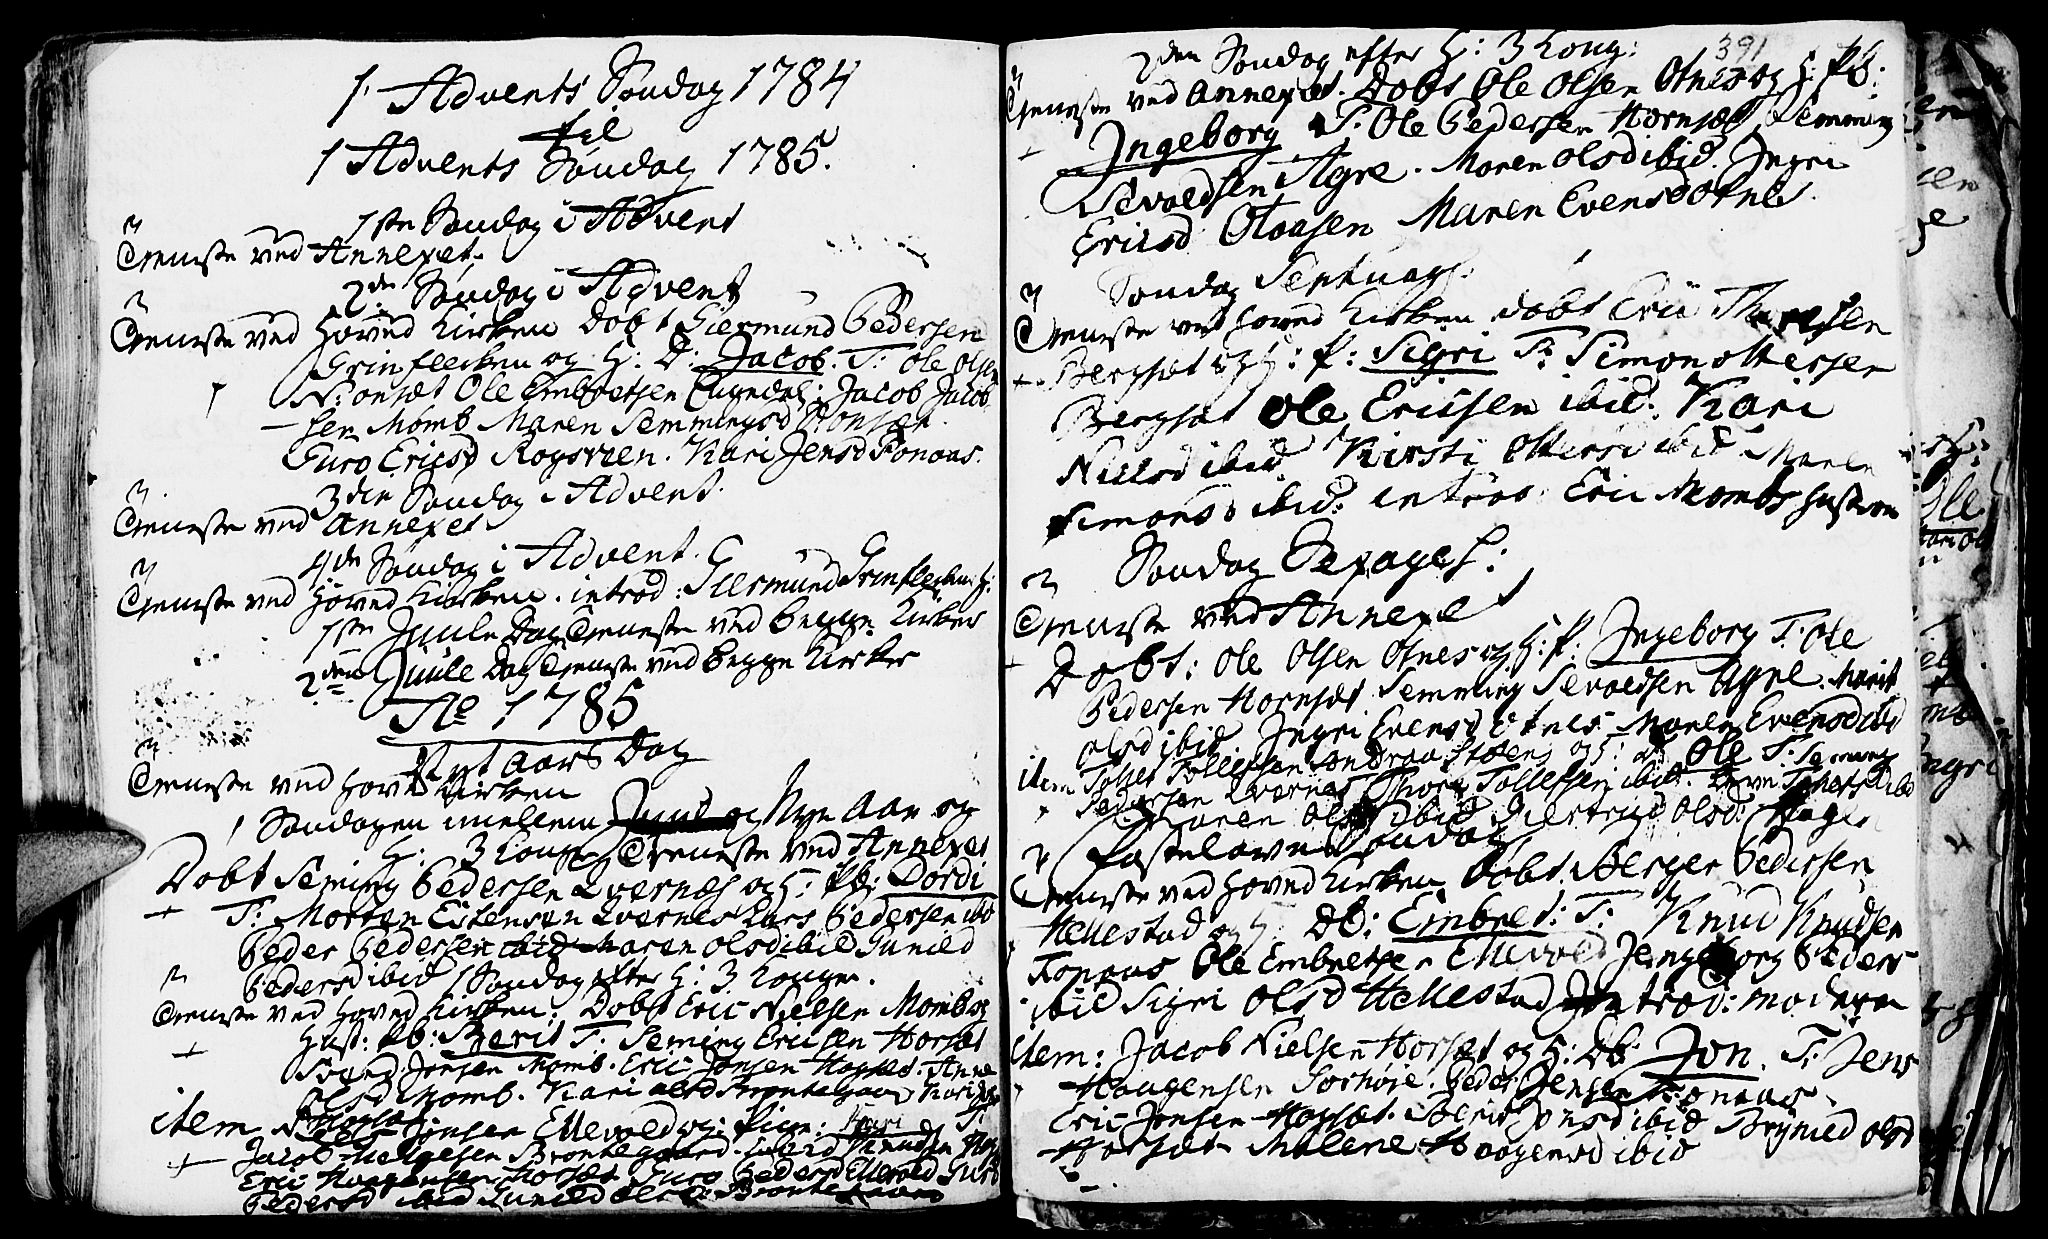 1. Advents Søndag 1784
til
1 Advents Søndag 1785.
1ste Søndag i Advent
Tieneste ved Annexet.
2den Søndag i Advent
Tieneste ved Hoved Kirken Dobt Giermund Pedersen
Grinflecken og H: D: Jacob. T: Ole Olsen
Ole Embretsen Jacob Jacob
sen Momb Maren Semmingsd
Guro Ericsd Røgsveen. Kari Jensd Fonaas.
3die Søndag i Advent.
Tieneste ved Annexet
4de Søndag i Advent.
Tieneste ved Hoved Kirken. introd: Giermund Grinflecken H:
1ste Juule Dag Tieneste ved begge Kirker
2den Juule Dag Tieneste ved begge Kirker
Ao 1785
Nyt Aars Dag
Tieneste ved Hoved Kirken
Søndagen imellem Juul og Nye Aar og
H: 3 Konger Tieneste ved Annexet
Dobt Seming Pedersen Qvernes og H: Pb: Dordi
T: Morten Estensen Qvernes Lars Pedersen ibid
Peder Pedersen ibid Maren Olsd ibid Gunild
Pedersd ibid
1 Søndag efter H: 3 Konger.
Tieneste ved Hoved Kirken. Dobt Eric Nielsen Momb og
Hust: Pb: Berit T. Seming Ericsen Horset
Svend Jonsen Momb. Eric Jonsen Hogset. Anne
Olsd Momb. Kari Olsd Brontegaard Kari
item Jonsen Ellevold og: Pige: Kari T:
Jacob Helgesen Brontegaard. Knudsen
Eric Haagensen Horset Guro Pedersd Ellevold Guro
Pedersd ibid Gunild Olsd Brontegaard
391
2den Søndag efter H: 3 Kong:
Tieneste ved Annexet. Dobt Ole Olsen Otnes og H: Pb:
Ingeborg T: Ole Pedersen Hornset Semming
Sevoldsen Agre. Maren Olsd ibid. Ingri
Ericsd Otaasen Maren Evensd Otnes.
Søndag Septuags:
Tieneste ved Hoved Kirken dobt Eric
Bergset og H: P: Sigri T: Simon Ottersen
Bergset Ole Ericsen ibid: Kari
Nielsd ibid Kirsti Ottersd ibid Maren
Simonsd ibid: introd: Eric Mombs Hustroe
Søndag Sexages:
Tieneste ved Annexet
Dobt: Ole Olsen Otnes og H: P: Ingeborg T: Ole
Pedersen Hornset Semming Sevoldsen Agre. Marit
Olsd ibid Ingri Evensd Otnes. Maren Evensd ibid
item Tollef Tollefsen og H: Ole T: Seming
Pedersen Qvernes Thore Tollefsen ibid.
Maren Olsd ibid Giertrud Olsd:
Fastelavns Søndag
Tieneste ved Hoved Kirken. Dobt Berger Pedersen
Hellestad og H: Db: Embret: T: Knud Knudsen
Fonaas Ole Embretsen Ellevold Ingeborg Peders
ibid Sigri Olsd Hellestad introd: moderen
item: Jacob Nielsen Horset og H: Db: Jon. T: Jens
Haagensen Sorhøie. Peder Jensen Fonaas.
Eric Jonsen Hogset. Berit Jonsd ibid Brynild Olsd
Horset Malene Haagensd ibid